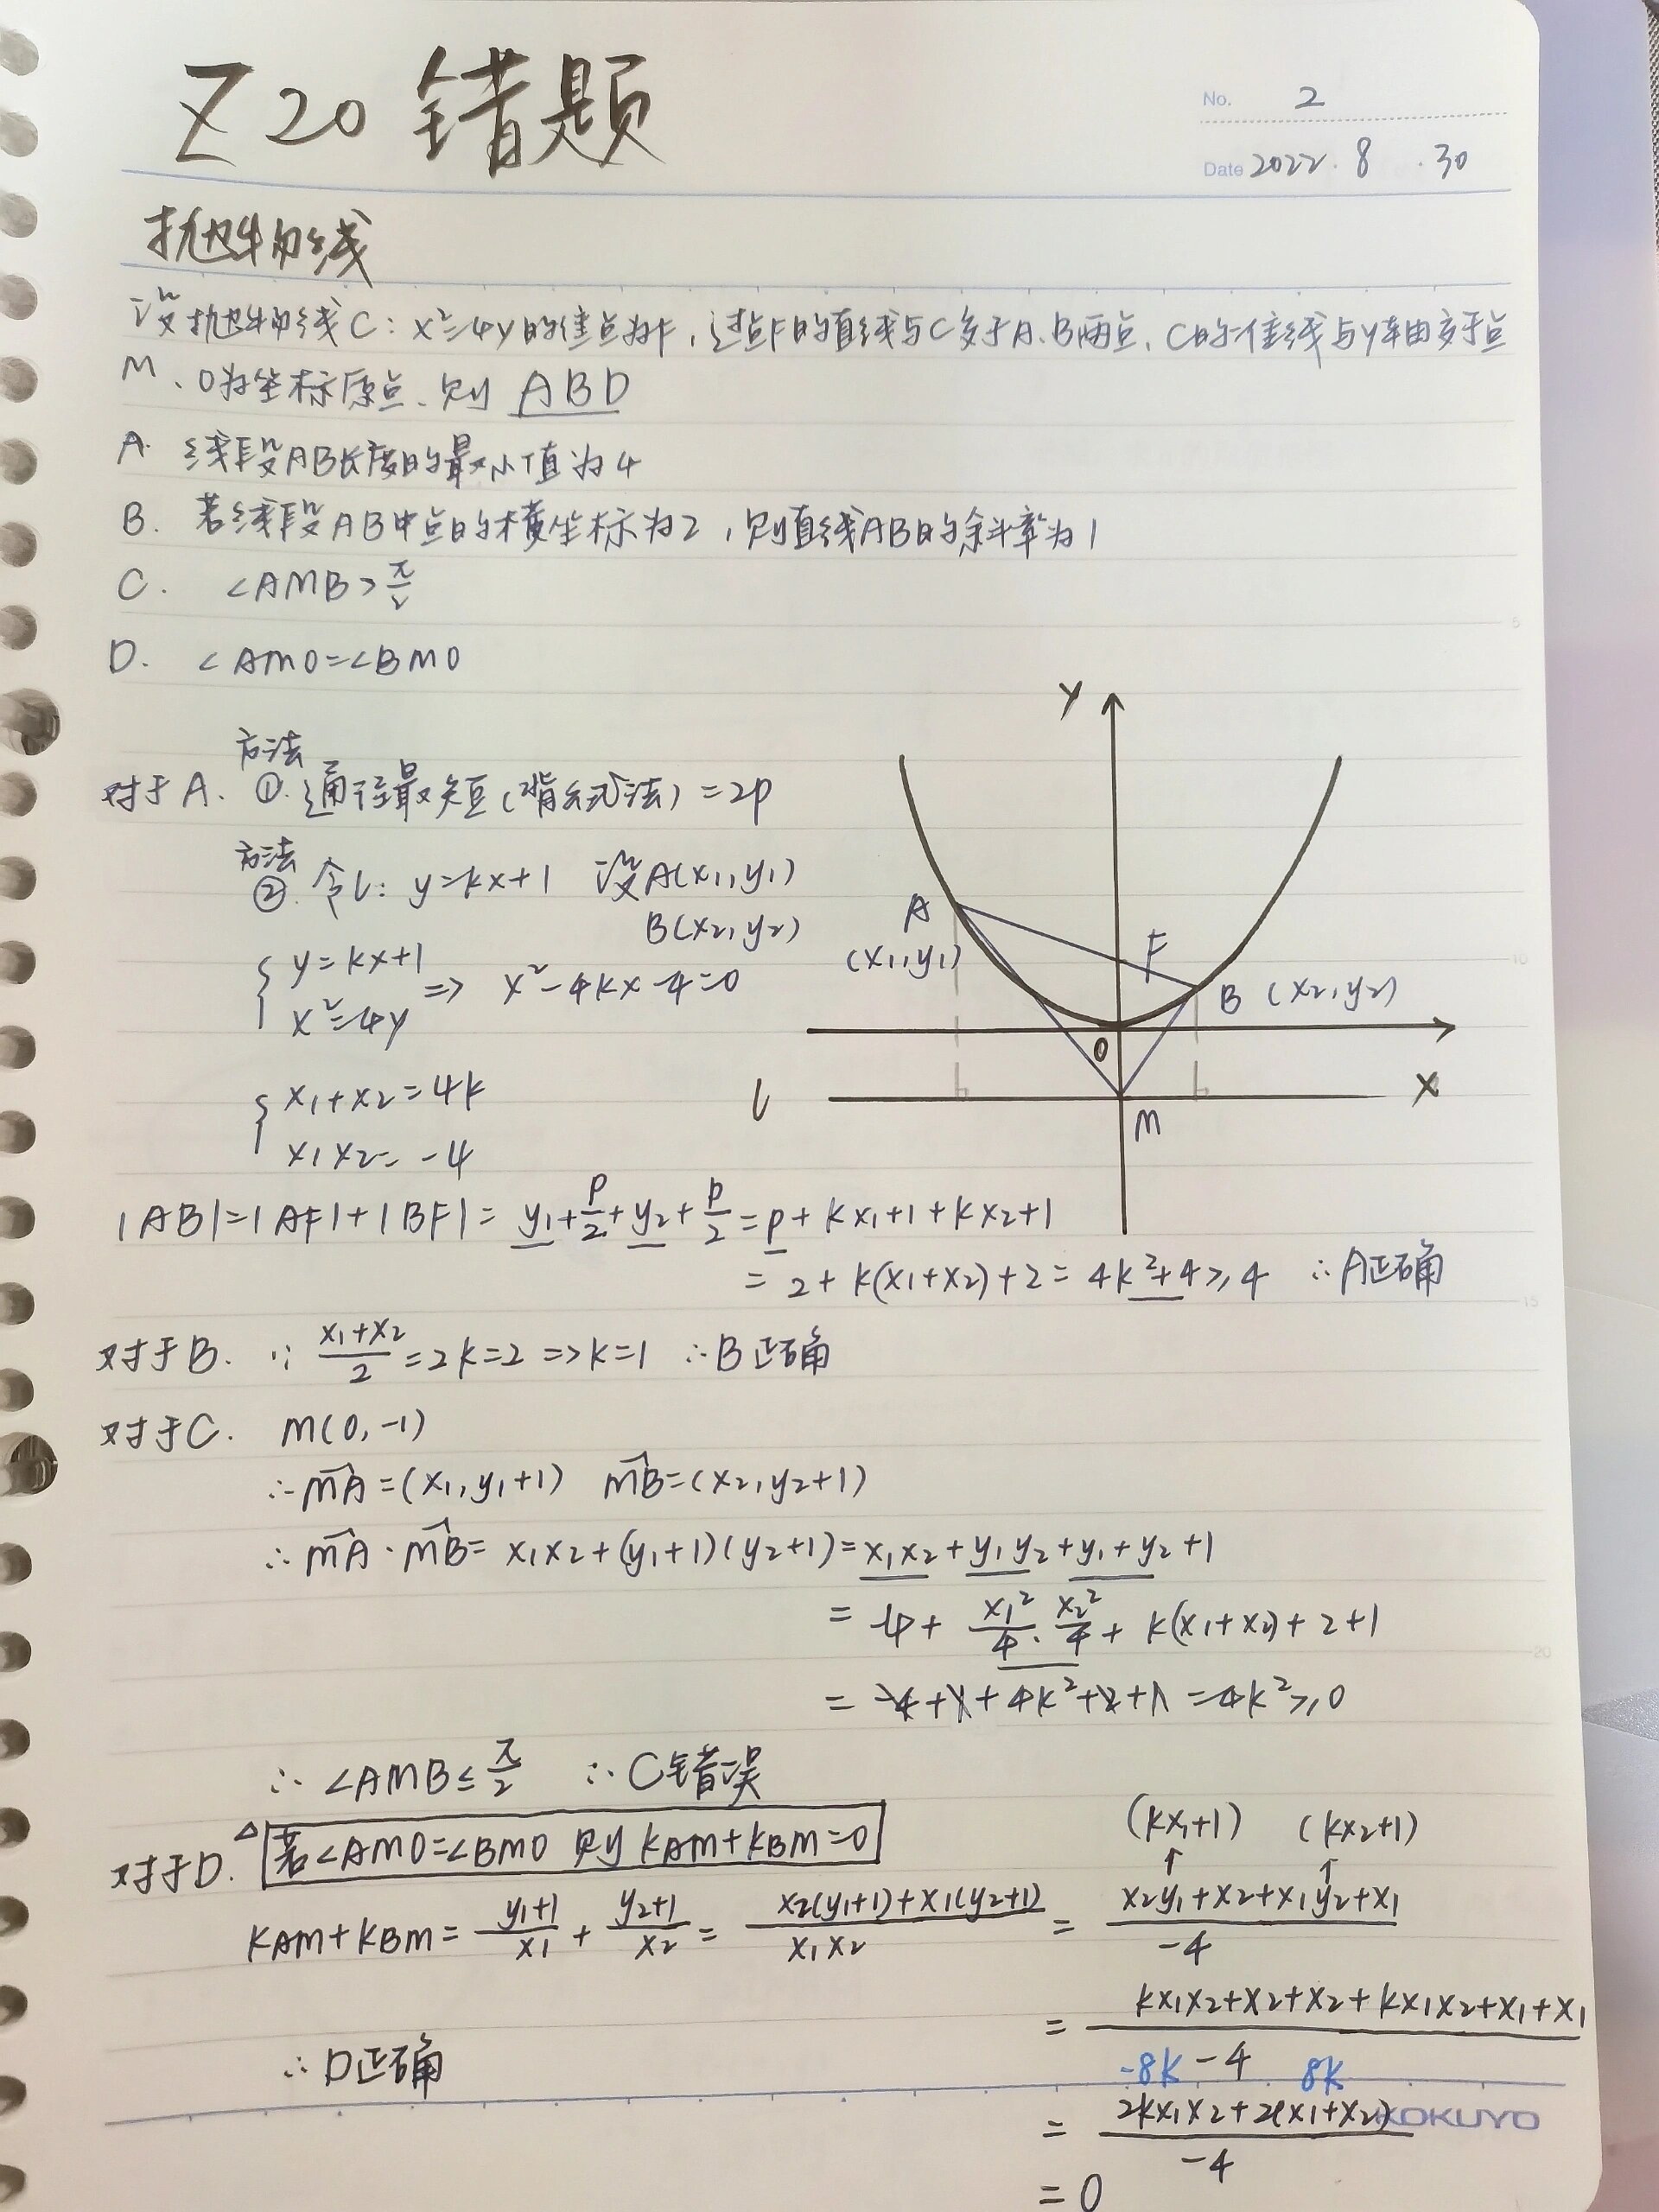 Z20 错题
No. 2
Date 2022.8.30
抛物线
设抛物线C: x²=4y的焦点为F, 过点F的直线与C交于A、B两点, C的准线与y轴交于点
M、O为坐标原点、则 ABD
A. 线段AB长度的最小值为4
B. 若线段AB中点的横坐标为2, 则直线AB的斜率为1
C. ∠AMB>π/2
D. ∠AMO=∠BMO
对于A. 方法①. 通径最短(背公式法)=2p
方法②. 令l: y=kx+1 设A(x₁,y₁)
B(x₂,y₂)
{ y=kx+1
x²=4y => x²-4kx-4=0
{ x₁+x₂=4k
x₁x₂=-4
y
A
(x₁,y₁)
F
B (x₂,y₂)
O
x
l
M
|AB|=|AF|+|BF|= y₁+p/2+y₂+p/2=p+kx₁+1+kx₂+1
= 2+k(x₁+x₂)+2=4k²+4≥4 ∴A正确
对于B. ∵ (x₁+x₂)/2=2k=2 =>k=1 ∴B正确
对于C. M(0,-1)
∴MA=(x₁,y₁+1) MB=(x₂,y₂+1)
∴MA·MB= x₁x₂+(y₁+1)(y₂+1)=x₁x₂+y₁y₂+y₁+y₂+1
= -4+ x₁²/4·x₂²/4+k(x₁+x₂)+2+1
= -4+1+4k²+2+1=4k²≥0
∴∠AMB≤π/2 ∴C错误
对于D. △ 若∠AMO=∠BMO 则 kAM+kBM=0
(kx₁+1) (kx₂+1)
↑ ↑
kAM+kBM= (y₁+1)/x₁ + (y₂+1)/x₂ = (x₂(y₁+1)+x₁(y₂+1))/(x₁x₂) = (x₂y₁+x₂+x₁y₂+x₁)/(-4)
= (kx₁x₂+x₂+x₂+kx₁x₂+x₁+x₁)/(-4)
∴D正确
-8k 8k
= (2kx₁x₂+2(x₁+x₂))/(-4)
KOKUYO
= 0